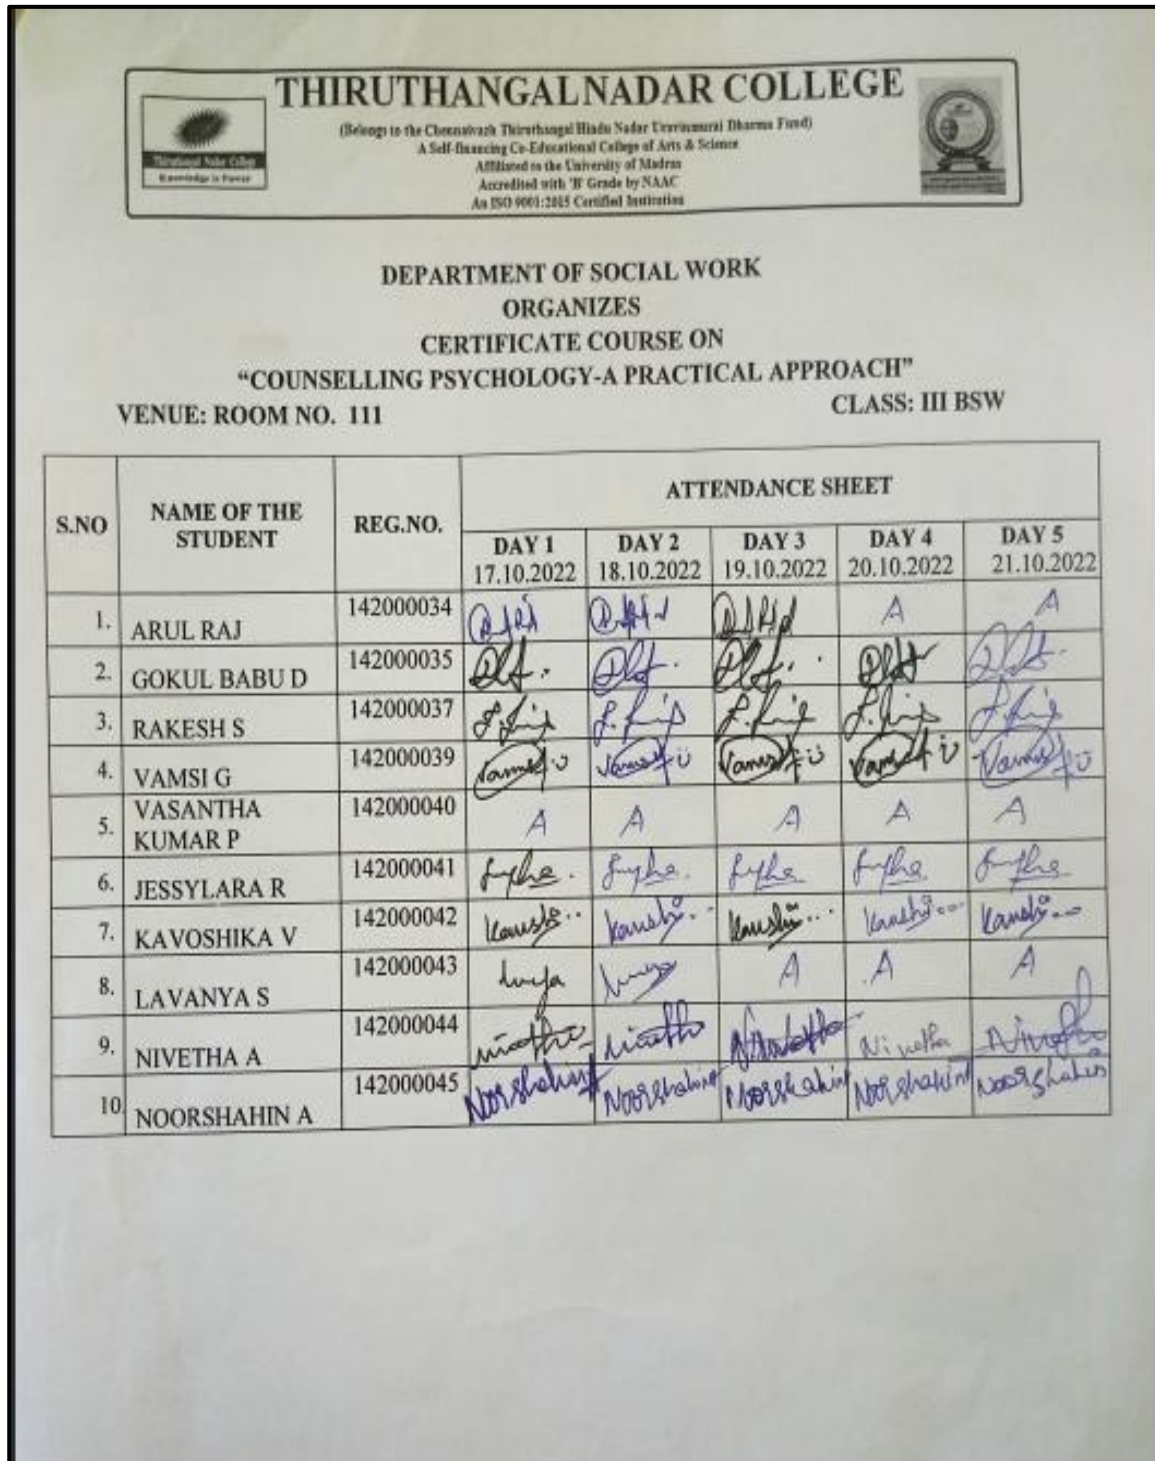 THIRUTHANGAL NADAR COLLEGE
(Belongs to the Chennaivazh Thiruthangal Hindu Nadar Uravinmurai Dharma Fund)
A Self-financing Co-Educational College of Arts & Science
Affiliated to the University of Madras
Accredited with 'B' Grade by NAAC
An ISO 9001:2015 Certified Institution
Thiruthangal Nadar College
Knowledge is Power
DEPARTMENT OF SOCIAL WORK
ORGANIZES
CERTIFICATE COURSE ON
“COUNSELLING PSYCHOLOGY-A PRACTICAL APPROACH”
VENUE: ROOM NO. 111 CLASS: III BSW
S.NO NAME OF THE STUDENT REG.NO. ATTENDANCE SHEET
DAY 1 DAY 2 DAY 3 DAY 4 DAY 5
17.10.2022 18.10.2022 19.10.2022 20.10.2022 21.10.2022
1. ARUL RAJ 142000034 A A
2. GOKUL BABU D 142000035
3. RAKESH S 142000037
4. VAMSI G 142000039 Vamsi Vamsi Vamsi Vamsi Vamsi
5. VASANTHA KUMAR P 142000040 A A A A A
6. JESSYLARA R 142000041
7. KAVOSHIKA V 142000042 Kaushi.. Kaushi.. Kaushi... Kaushi... Kaushi...
8. LAVANYA S 142000043 A A A
9. NIVETHA A 142000044 Nivetha Nivetha Nivetha Nivetha Nivetha
10. NOORSHAHIN A 142000045 Noorshahin Noorshahin Noorshahin Noorshahin Noorshahin